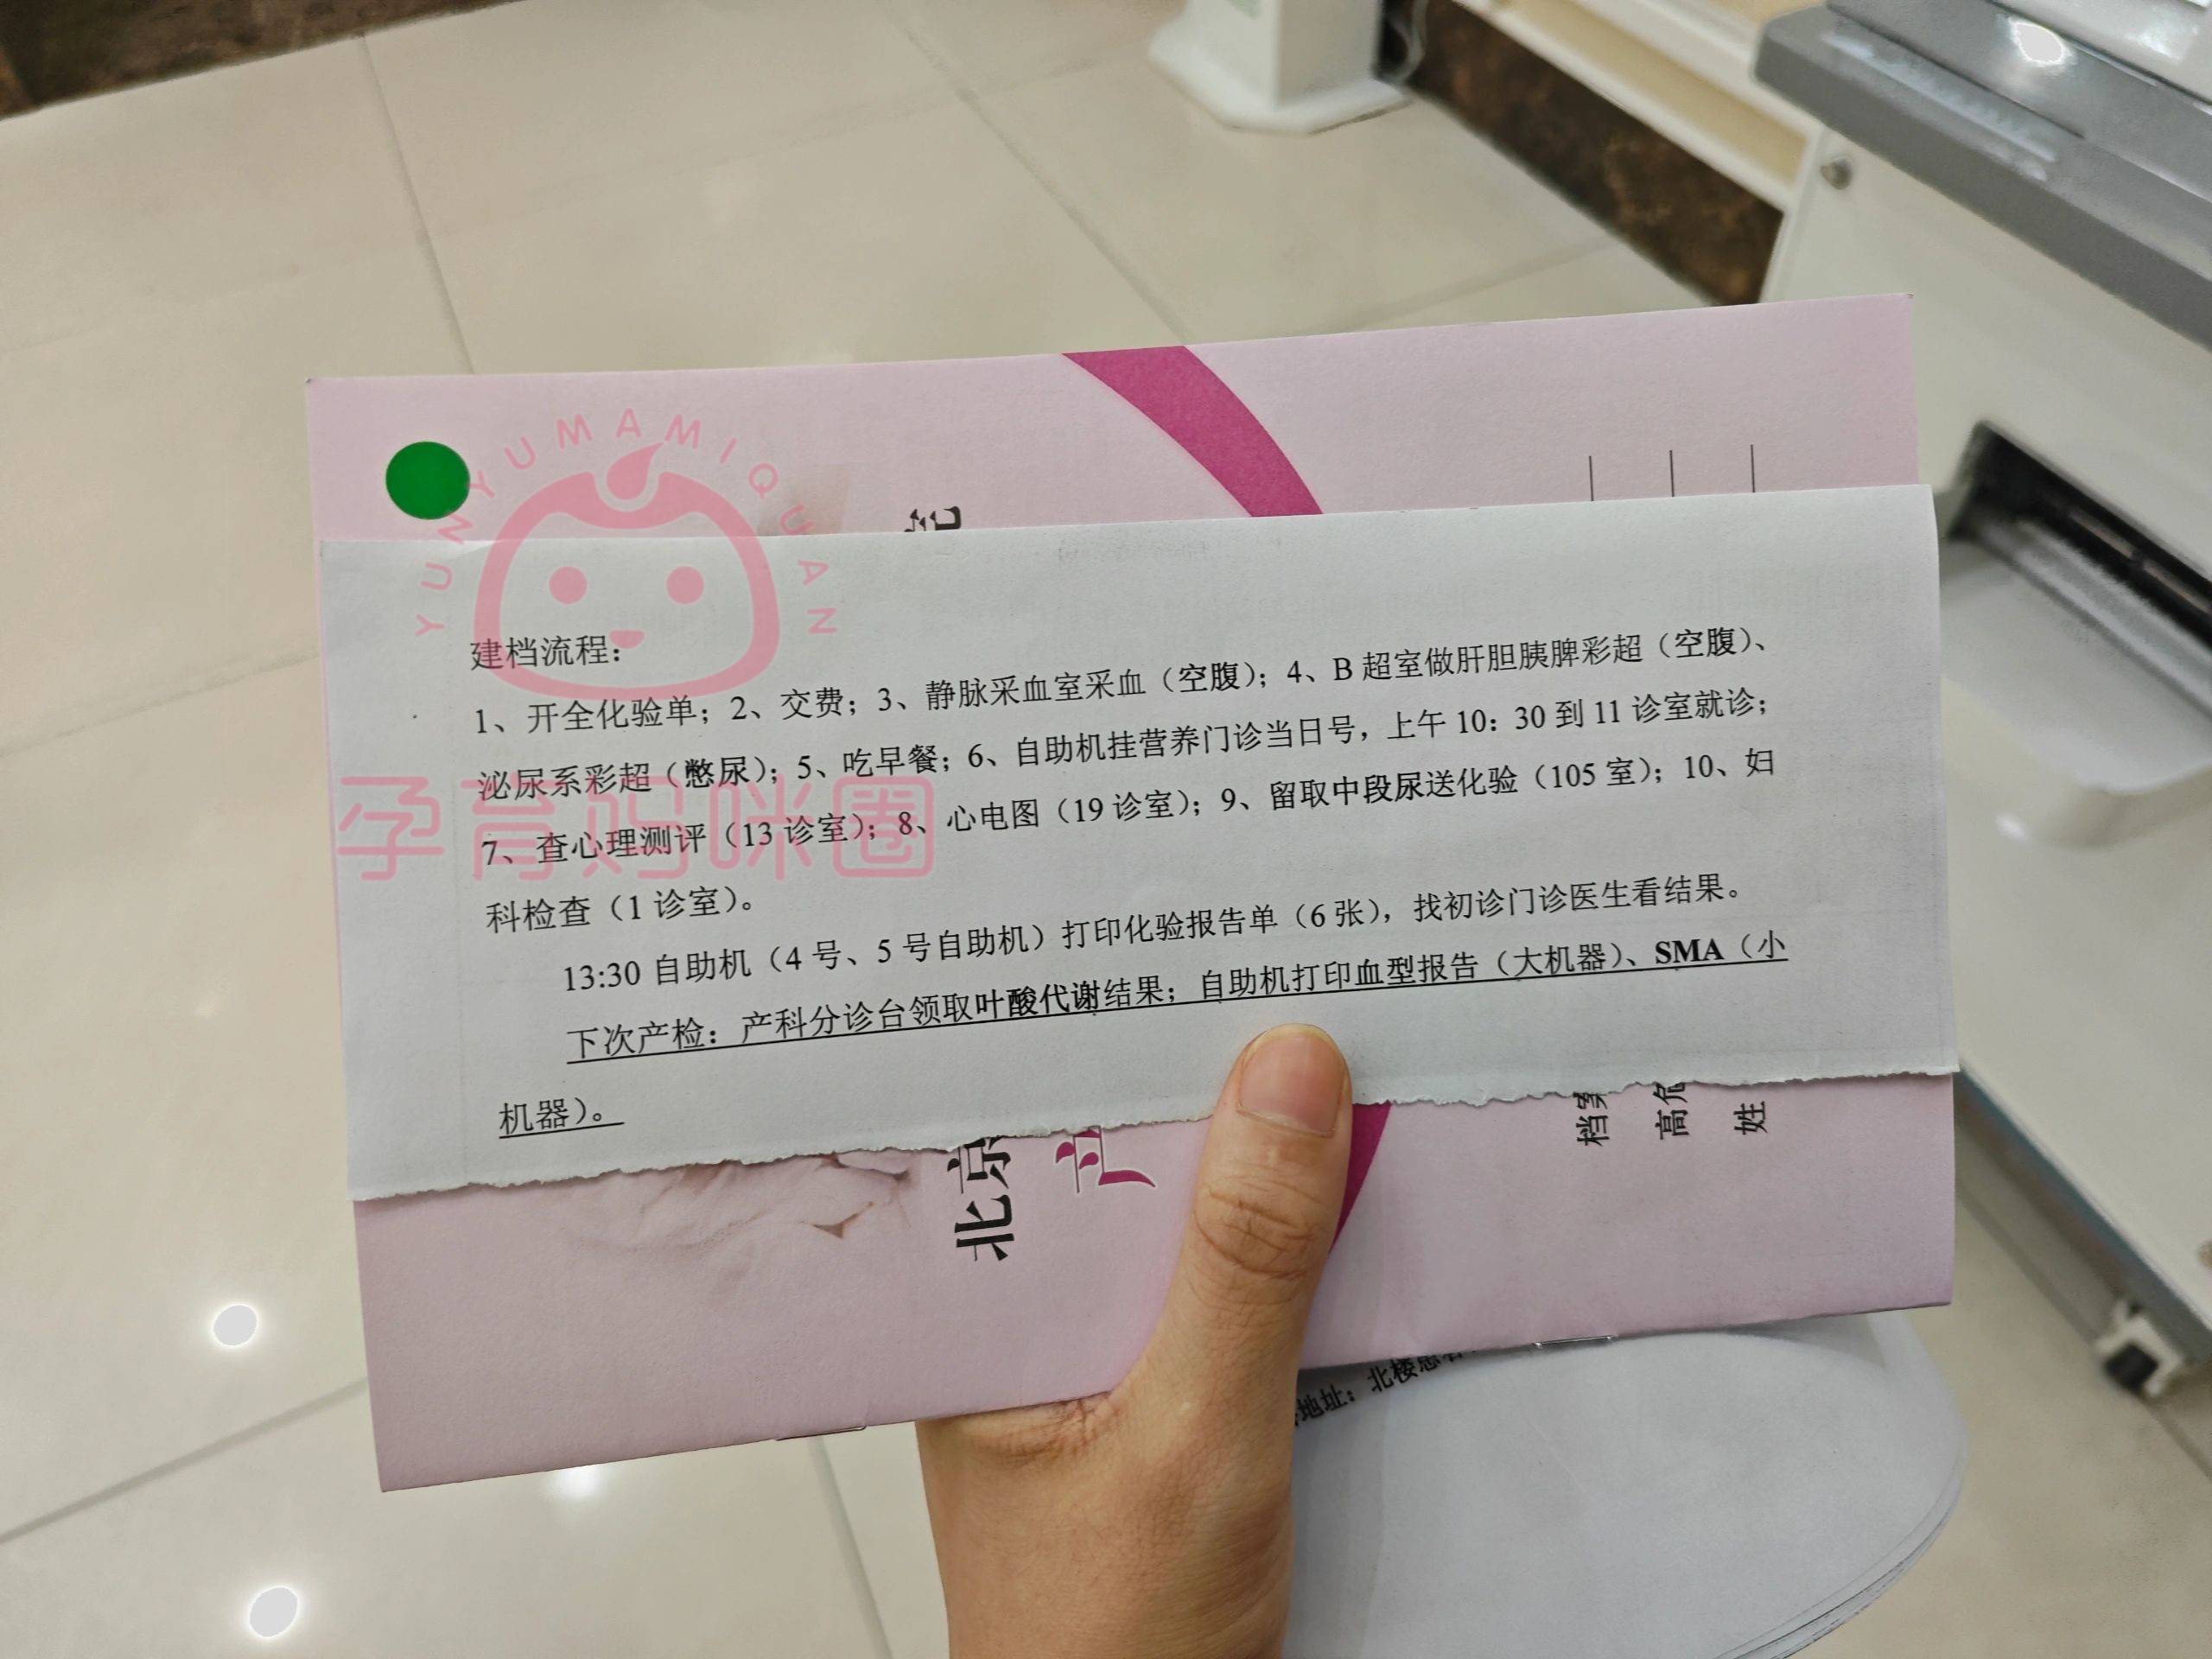 YUNYUMAMIQUAN
孕育妈咪圈
建档流程：
1、开全化验单；2、交费；3、静脉采血室采血（空腹）；4、B 超室做肝胆胰脾彩超（空腹）、
泌尿系彩超（憋尿）；5、吃早餐；6、自助机挂营养门诊当日号，上午 10：30 到 11 诊室就诊；
7、查心理测评（13 诊室）；8、心电图（19 诊室）；9、留取中段尿送化验（105 室）；10、妇
科检查（1 诊室）。
13:30 自助机（4 号、5 号自助机）打印化验报告单（6 张），找初诊门诊医生看结果。
下次产检：产科分诊台领取叶酸代谢结果；自助机打印血型报告（大机器）、SMA（小
机器）。
北京
产
档案
高危
姓
地址：北楼